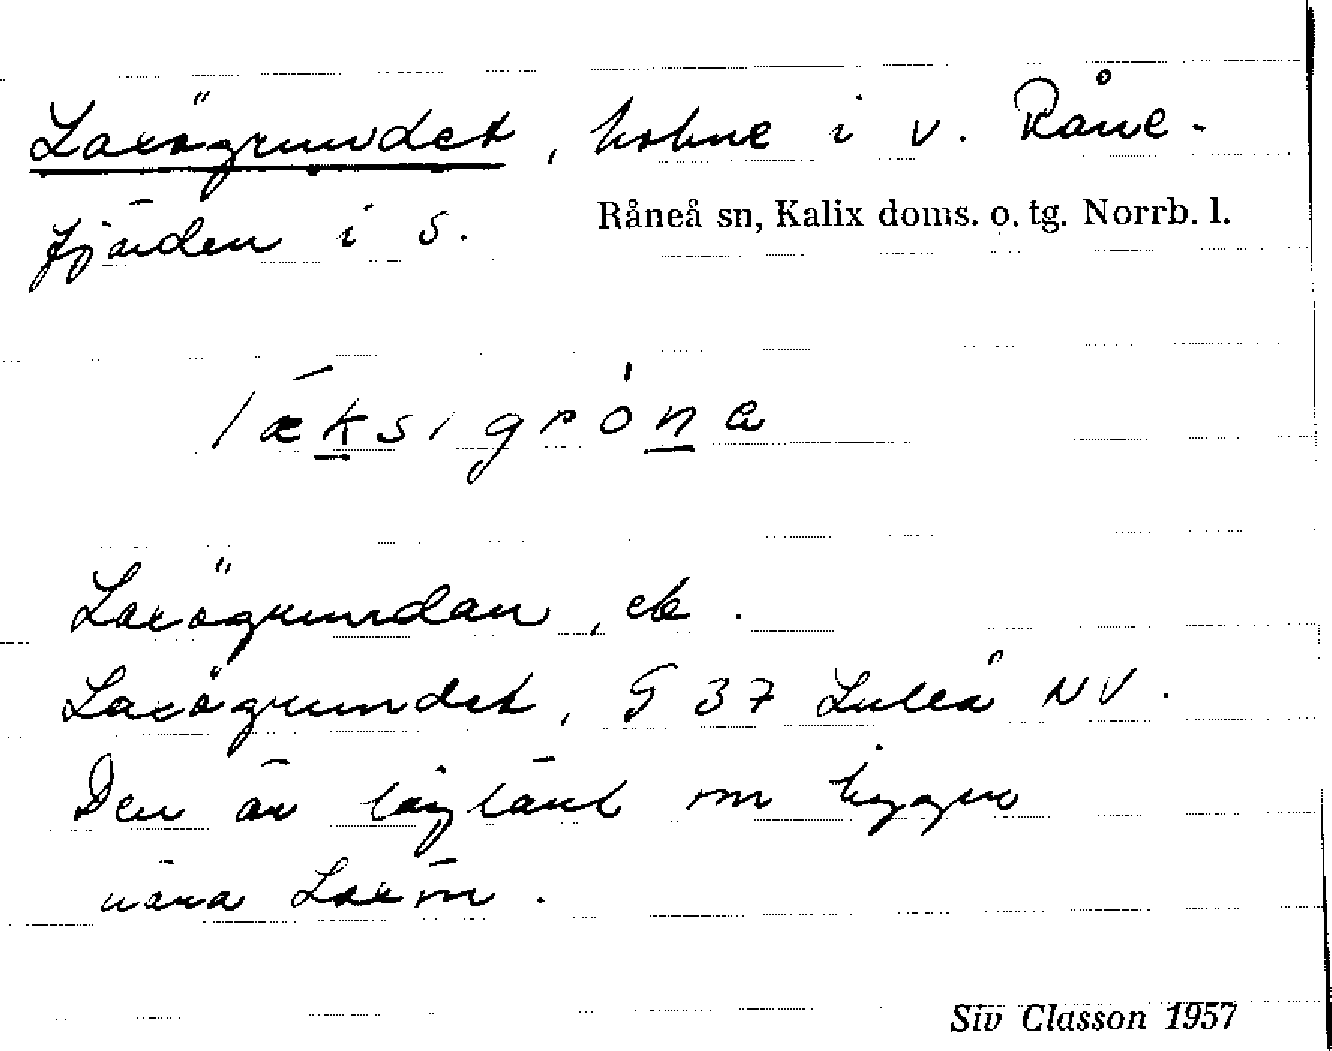 Laxögrundet, holme i v. Råne-
fjärden i S.
Råneå sn, Kalix doms. o. tg. Norrb. l.
læksigróna
Laxögrundan, ek.
Laxögrundet, G 37 Luleå NV.
Den är låglänt och ligger
nära Laxön.
Siv Classon 1957